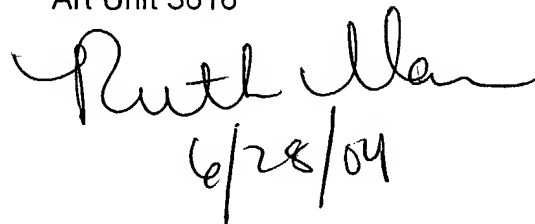 Art Unit 3616
Ruth Ilan
6/28/04